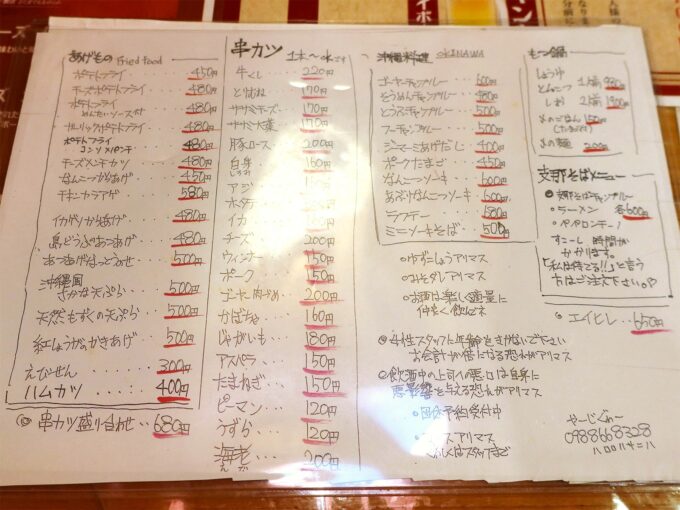 あげもの Fried food
ポテトフライ 450円
チーズポテトフライ 480円
ポテトフライ 480円
めんたいソース付
ガーリックポテトフライ 480円
ポテトフライ 480円
コンソメパンチ
チーズメンチカツ 480円
なんこつからあげ 450円
チキンカラアゲ 580円
イカゲソからあげ 480円
島どうふあつあげ 480円
500円
沖縄風
さかな天ぷら 500円
天然もずくの天ぷら 500円
紅しょうがのかきあげ 500円
えびせん 300円
ハムカツ 400円
◎串カツ盛り合わせ 680円
串カツ
牛くし 220円
とりもね 170円
ササミチーズ 170円
ササミ大葉 170円
豚ロース 200円
白身 160円
アジ 150円
ホタテ
イカ 160円
チーズ 200円
ウィンナー 150円
ポーク 150円
ゴーヤー肉づめ 200円
かぼちゃ 160円
じゃがいも 180円
アスパラ 150円
たまねぎ 150円
ピーマン 120円
うずら 120円
海老 200円
沖縄料理 OKINAWA
ゴーヤーチャンプルー 600円
そうめんチャンプルー 480円
とうふチャンプルー 500円
フーチャンプルー 500円
ジーマーミあげだし 400円
ポークたまご 450円
なんこつソーキ 600円
あぶりなんこつソーキ 600円
ラフテー 580円
ミニソーキそば 500円
○ゆずこしょうアリマス
○みそダレアリマス
○お酒は楽しく適量に
仲良く飲むベキ
◎女性スタッフに年齢をきかないで下さい
お会計が倍になる恐れがアリマス
◎飲酒中の上司の悪口は自身に
悪影響を与える恐れがアリマス
○団体予約受付中
アリマス
くわしくはスタッフまで
もつ鍋
しょうゆ
とんこつ 1人前 980円
しお 2人前 1900円
〆のごはん 150円
(たまご付)
〆の麺 200円
支那そばメニュー
◎支那そばチャンプルー
○ラーメン 各600円
○ペペロンチーノ
すこーし時間が
かかります。
「私は待てる!!」と言う
方はご注文下さい
◎エイヒレ 650円
やーじぐゎー
0988668328